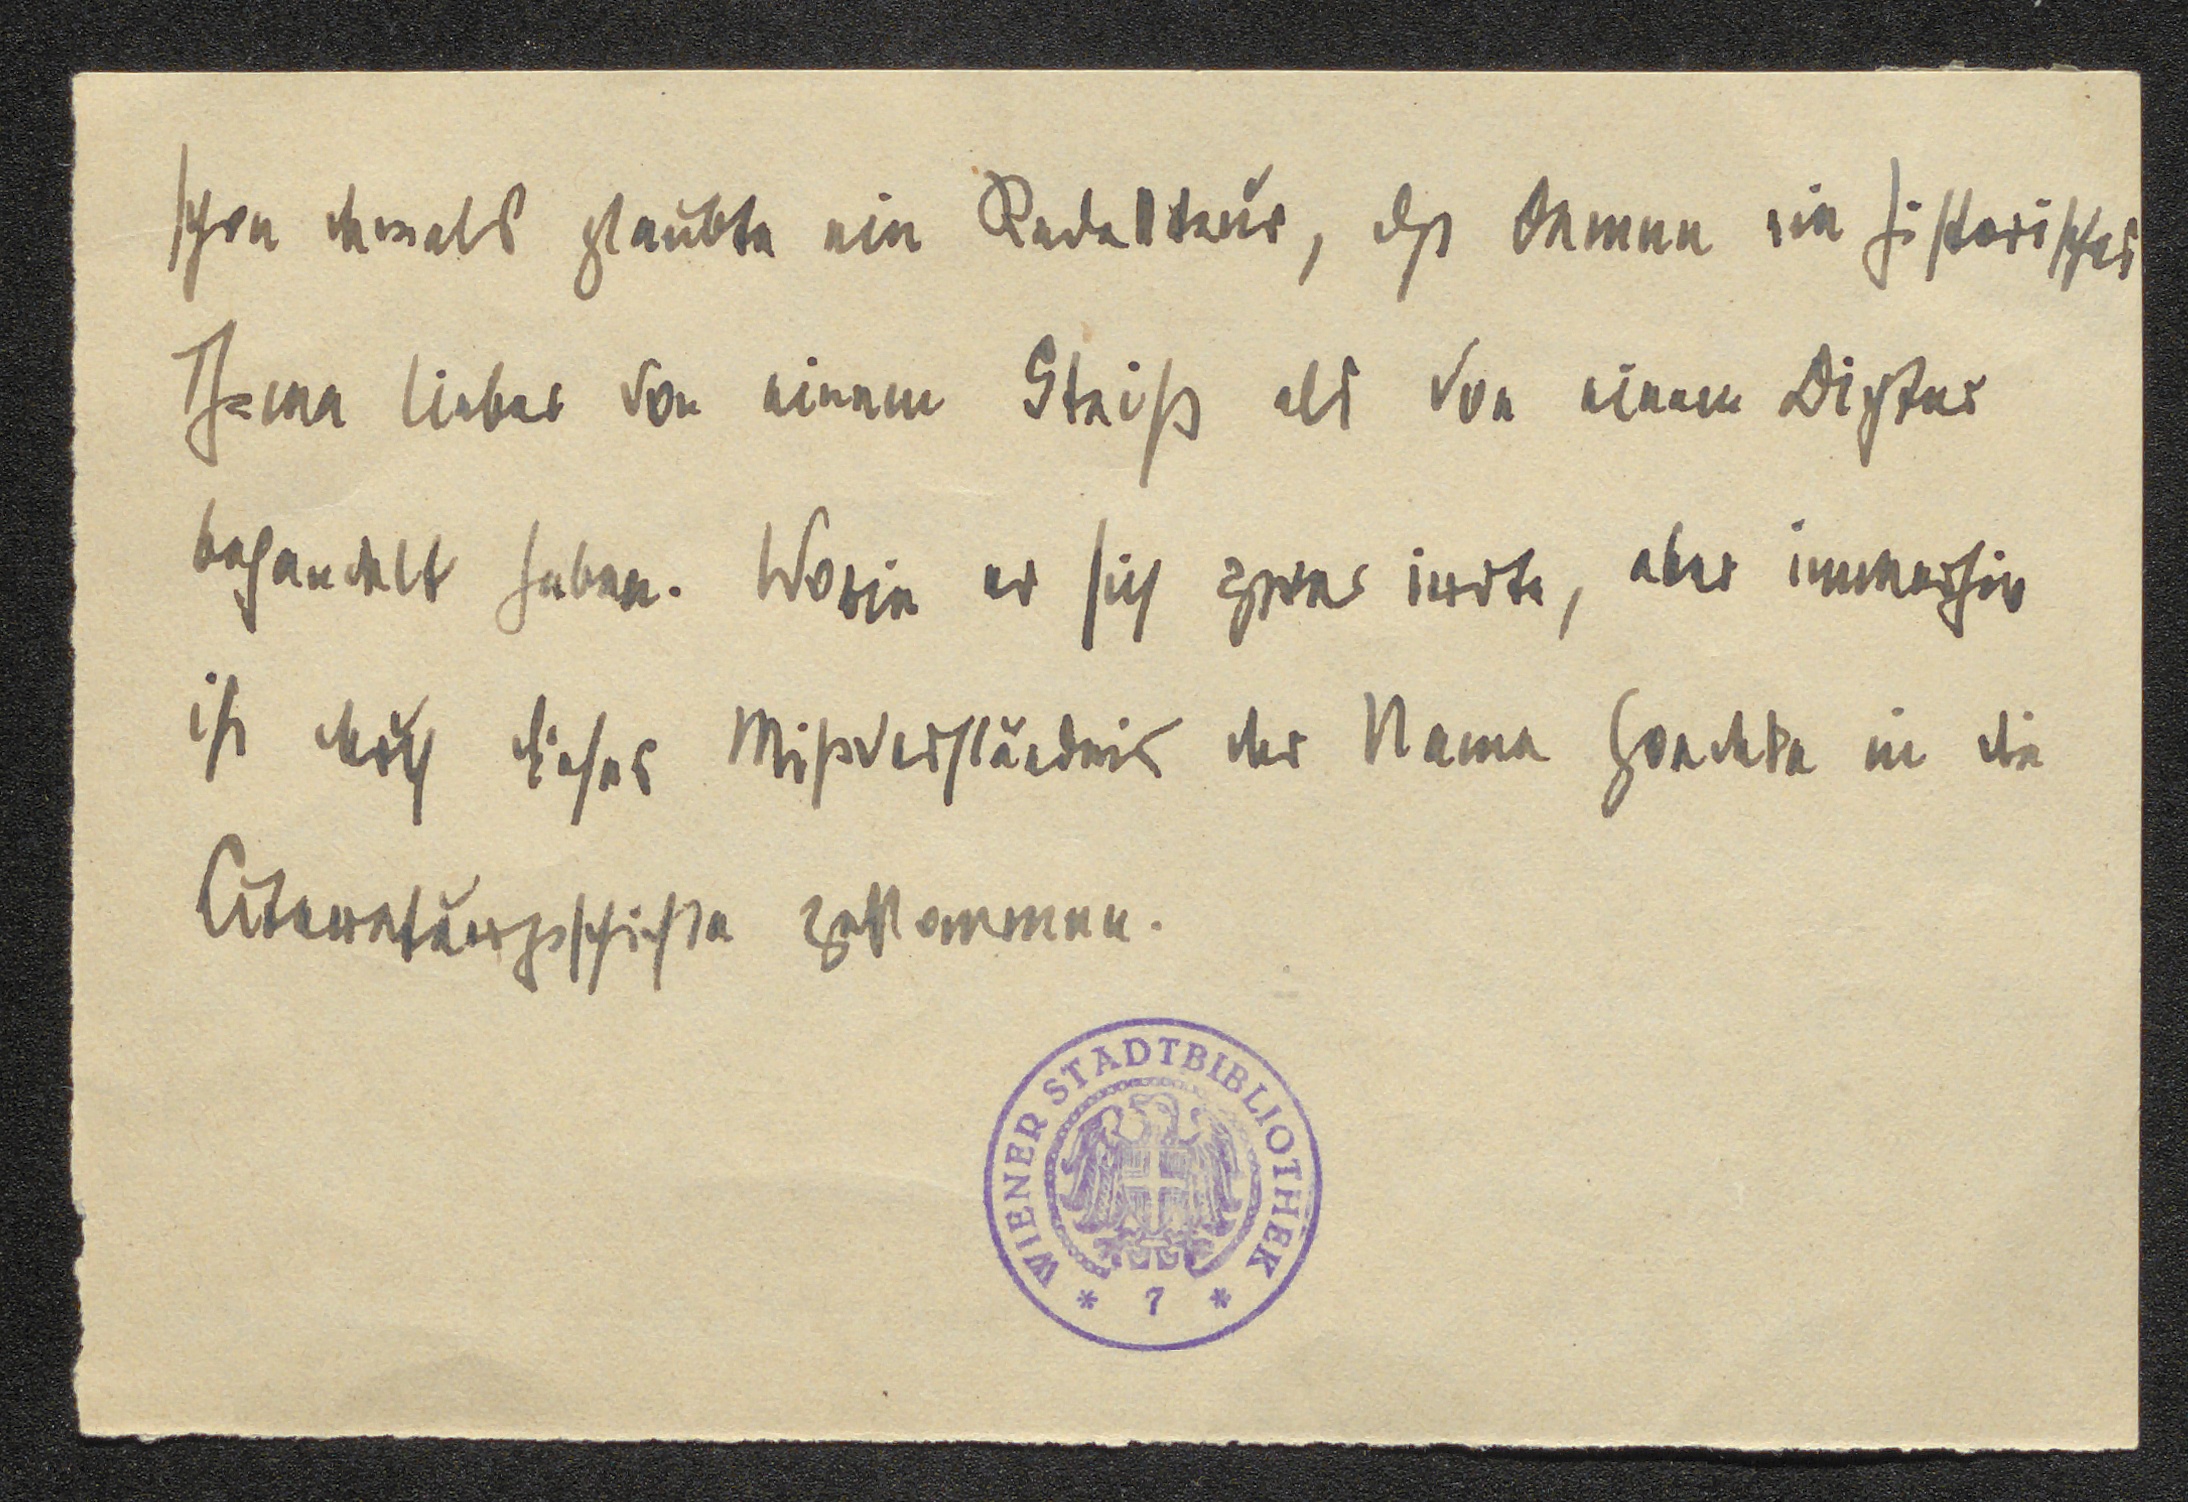 schon damals glaubte ein Redakteur, daß Damen ein historisches
Thema lieber von einem Steiß als von einem Dichter
behandelt haben. Worin er sich zwar irrte, aber immerhin
ist durch dieses Mißverständnis der Name Goedeke in die
Literaturgeschichte gekommen.
WIENER STADTBIBLIOTHEK
* 7 *